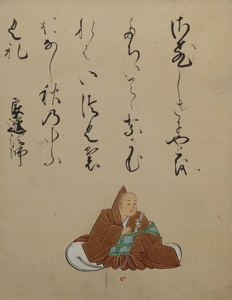 さひしさにやとを
たちいてゝなかむ
れはいつくも
おなし秋乃ゆふ
く礼
良暹法師